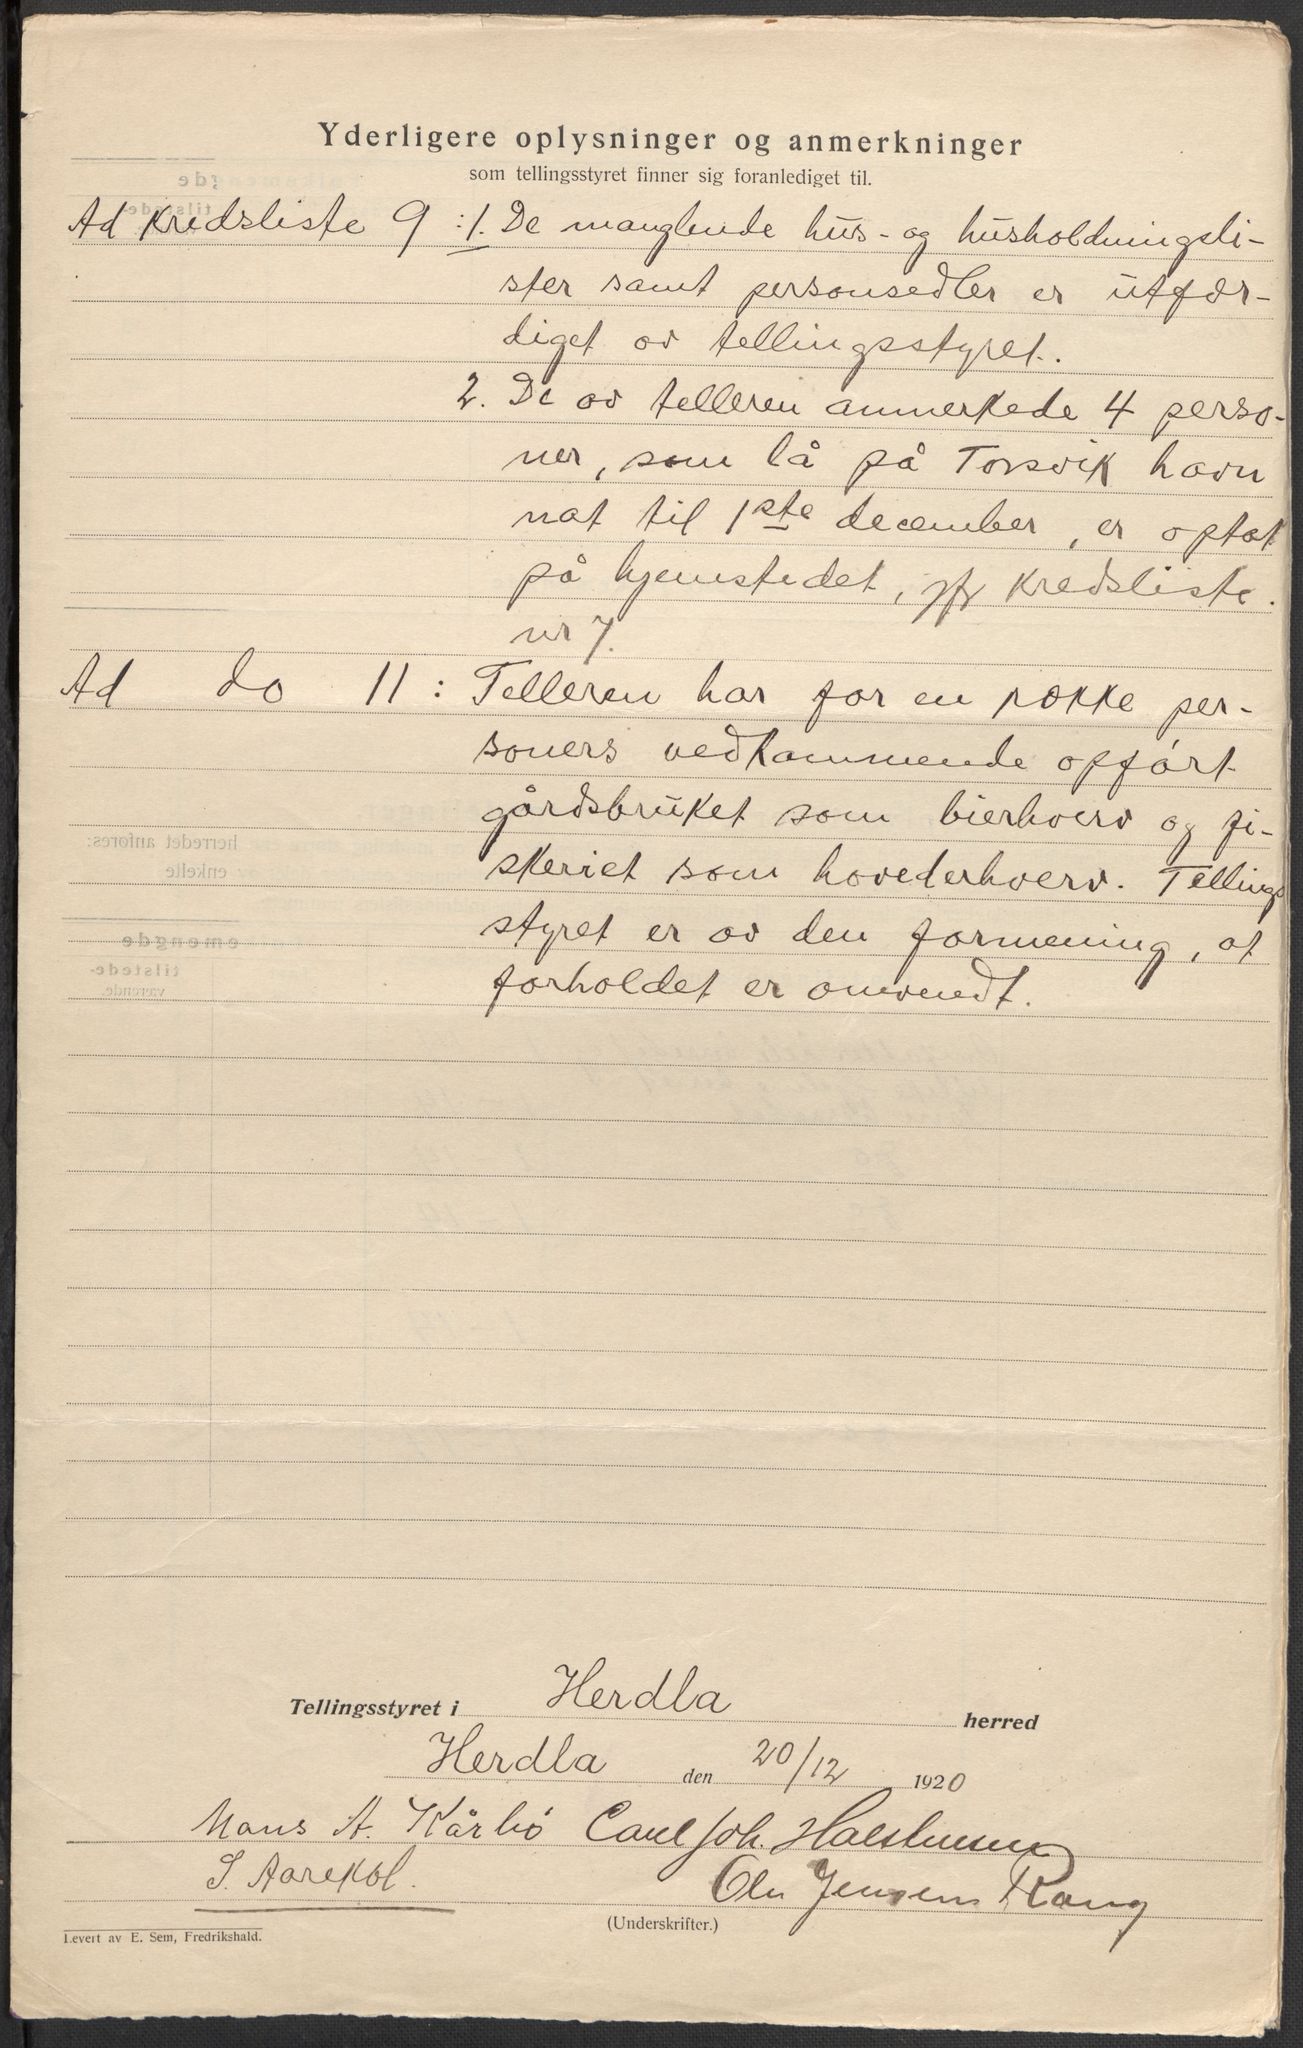 Yderligere oplysninger og anmerkninger
som tellingsstyret finner sig foranlediget til.
Ad Kredsliste 9 : 1. De manglende hus- og husholdningsli-
ster samt personsedler er utfær-
diget av tellingsstyret.
2. De av telleren anmerkede 4 perso-
ner, som lå på Torsvik havn
nat til 1ste december, er optat
på hjemstedet, jfr Kredsliste
nr 7.
Ad do 11 : Telleren har for en række per-
soners vedkommende opført
gårdsbruket som bierhverv og fi-
skeriet som hovederhverv. Tellings
styret er av den formening, at
forholdet er omvendt.
Tellingsstyret i Herdla herred
Herdla den 20/12 1920
Mons A. Kårbø Carl Joh.
S. Aarekol. Ole Jensen Rong
(Underskrifter.)
Levert av E. Sem, Fredrikshald.